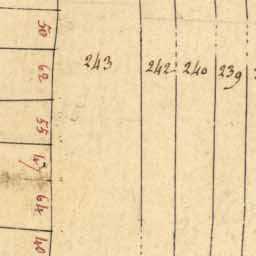 243 242 240 239
50
62
55
47
64
40